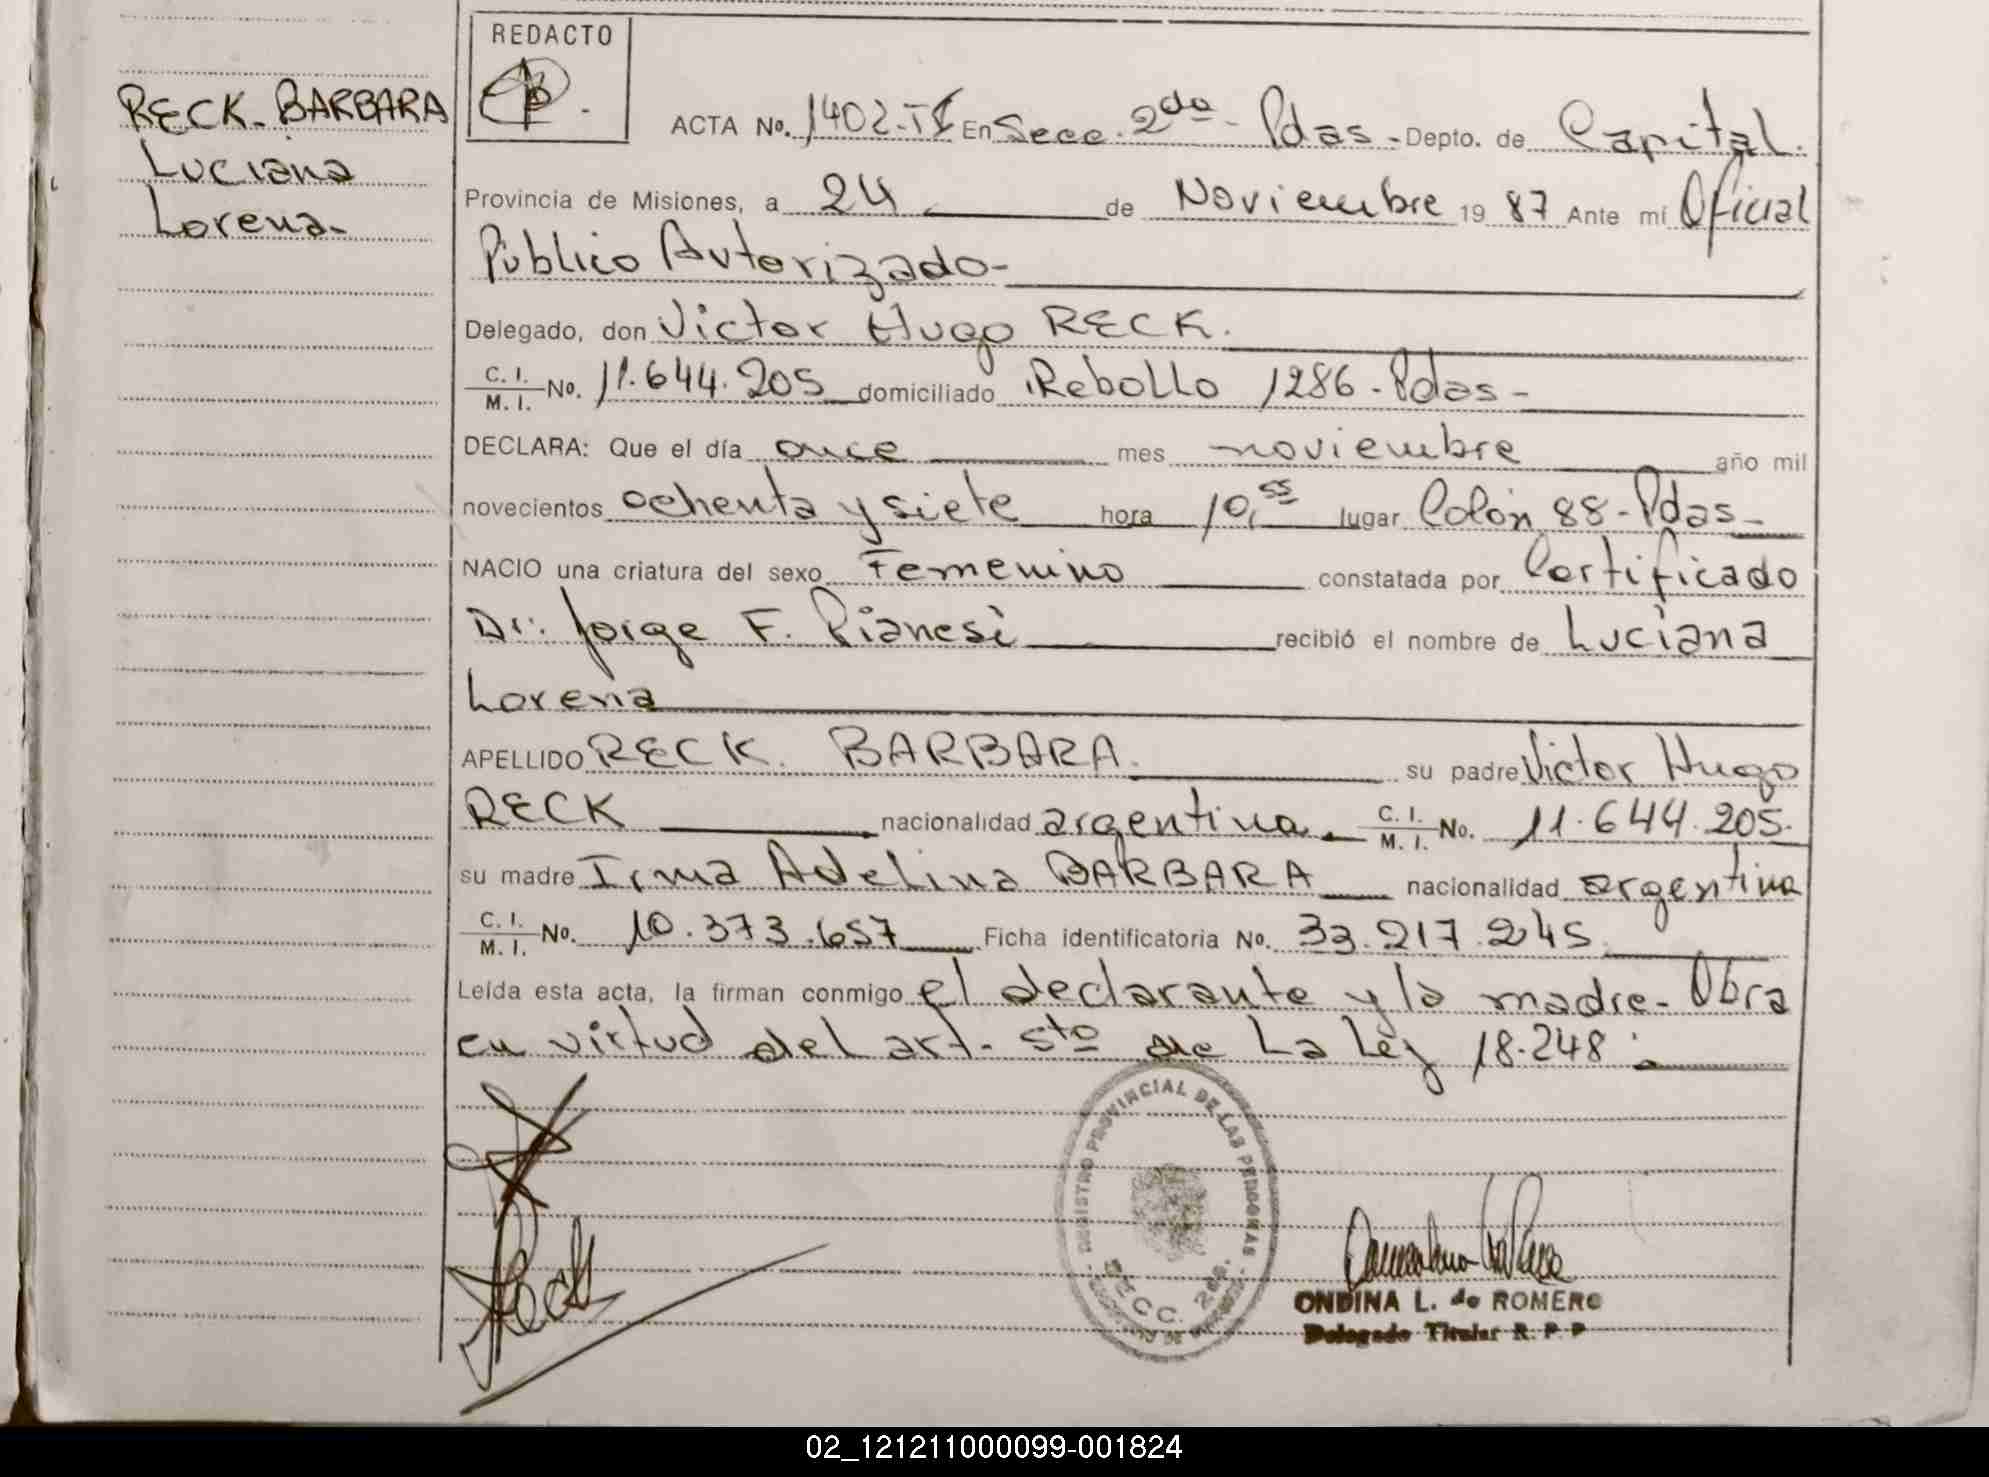 REDACTO
RECK-BARBARA
Luciana
Lorena-
ACTA No. 1402-TI En Secc. 2da - Pdas - Depto. de Capital.
Provincia de Misiones, a 24 de Noviembre 1987 Ante mí Oficial
Público Autorizado-
Delegado, don Victor Hugo RECK.
C. I. / M. I. No. 11.644.205 domiciliado Rebollo 1286 - Pdas -
DECLARA: Que el día once mes noviembre año mil
novecientos ochenta y siete hora 10,55 lugar Colón 88 - Pdas -
NACIO una criatura del sexo Femenino constatada por Certificado
Dr. Jorge F. Pianesi recibió el nombre de Luciana
Lorena
APELLIDO RECK. BARBARA. su padre Victor Hugo
RECK nacionalidad argentina. C. I. / M. I. No. 11.644.205.
su madre Irma Adelina BARBARA nacionalidad argentina
C. I. / M. I. No. 10.373.657 Ficha identificatoria No. 33.217.245.
Leída esta acta, la firman conmigo el declarante y la madre - Obra
en virtud del art. 5to de La Ley 18.248.-
REGISTRO PROVINCIAL DE LAS PERSONAS
SECC. 2da.
Reck
ONDINA L. de ROMERO
Delegado Titular R. P. P
02_121211000099-001824